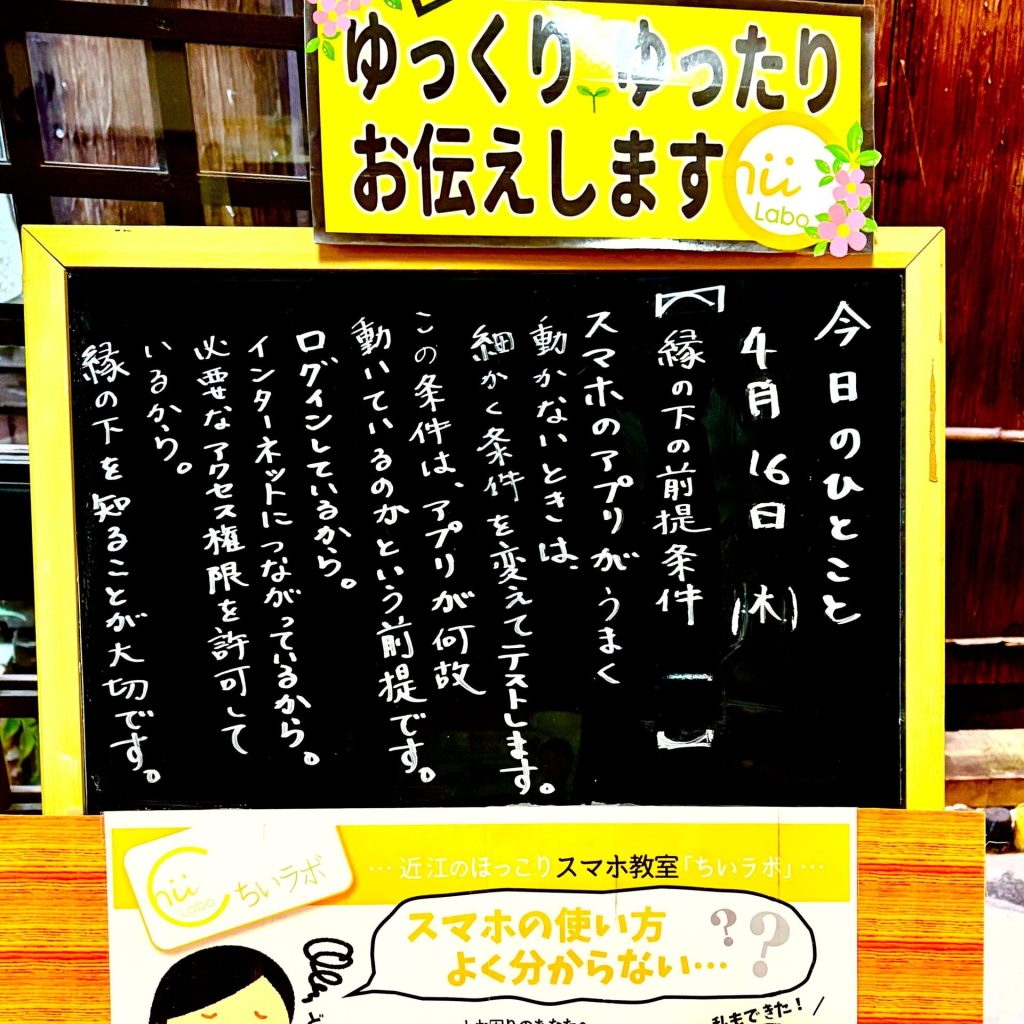 ゆっくり ゆったり
お伝えします
hii
Labo
今日のひとこと
4月16日 (木)
【縁の下の前提条件】
スマホのアプリがうまく
動かないときは、
細かく条件を変えてテストします。
この条件は、アプリが何故
動いているのかという前提です。
ログインしているから。
インターネットにつながっているから。
必要なアクセス権限を許可して
いるから。
縁の下を知ることが大切です。
Chii
Labo
ちいラボ
…近江のほっこりスマホ教室「ちいラボ」…
スマホの使い方
よく分からない…
??
私もできた!